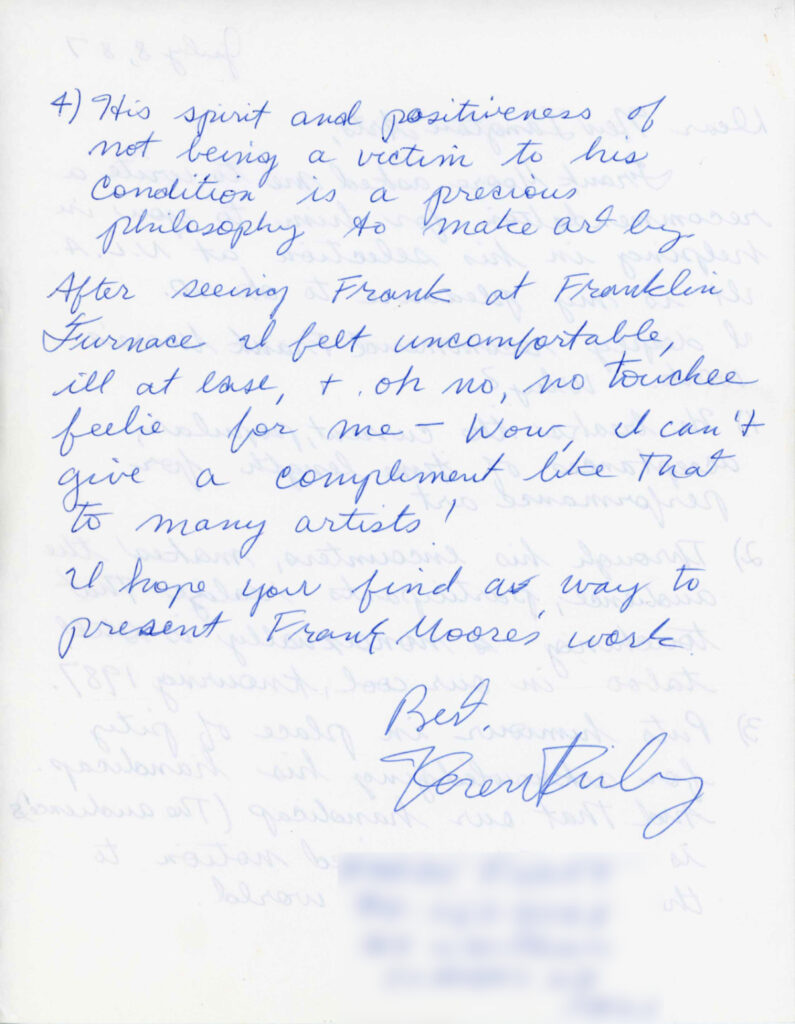 4) His spirit and positiveness of
not being a victim to his
condition is a precious
philosophy to make art by.
After seeing Frank at Franklin
Furnace I felt uncomfortable,
ill at ease, + oh no, no touchee
feelie for me – Wow, I can't
give a compliment like that
to many artists!
I hope you find a way to
present Frank Moore's work.
Best,